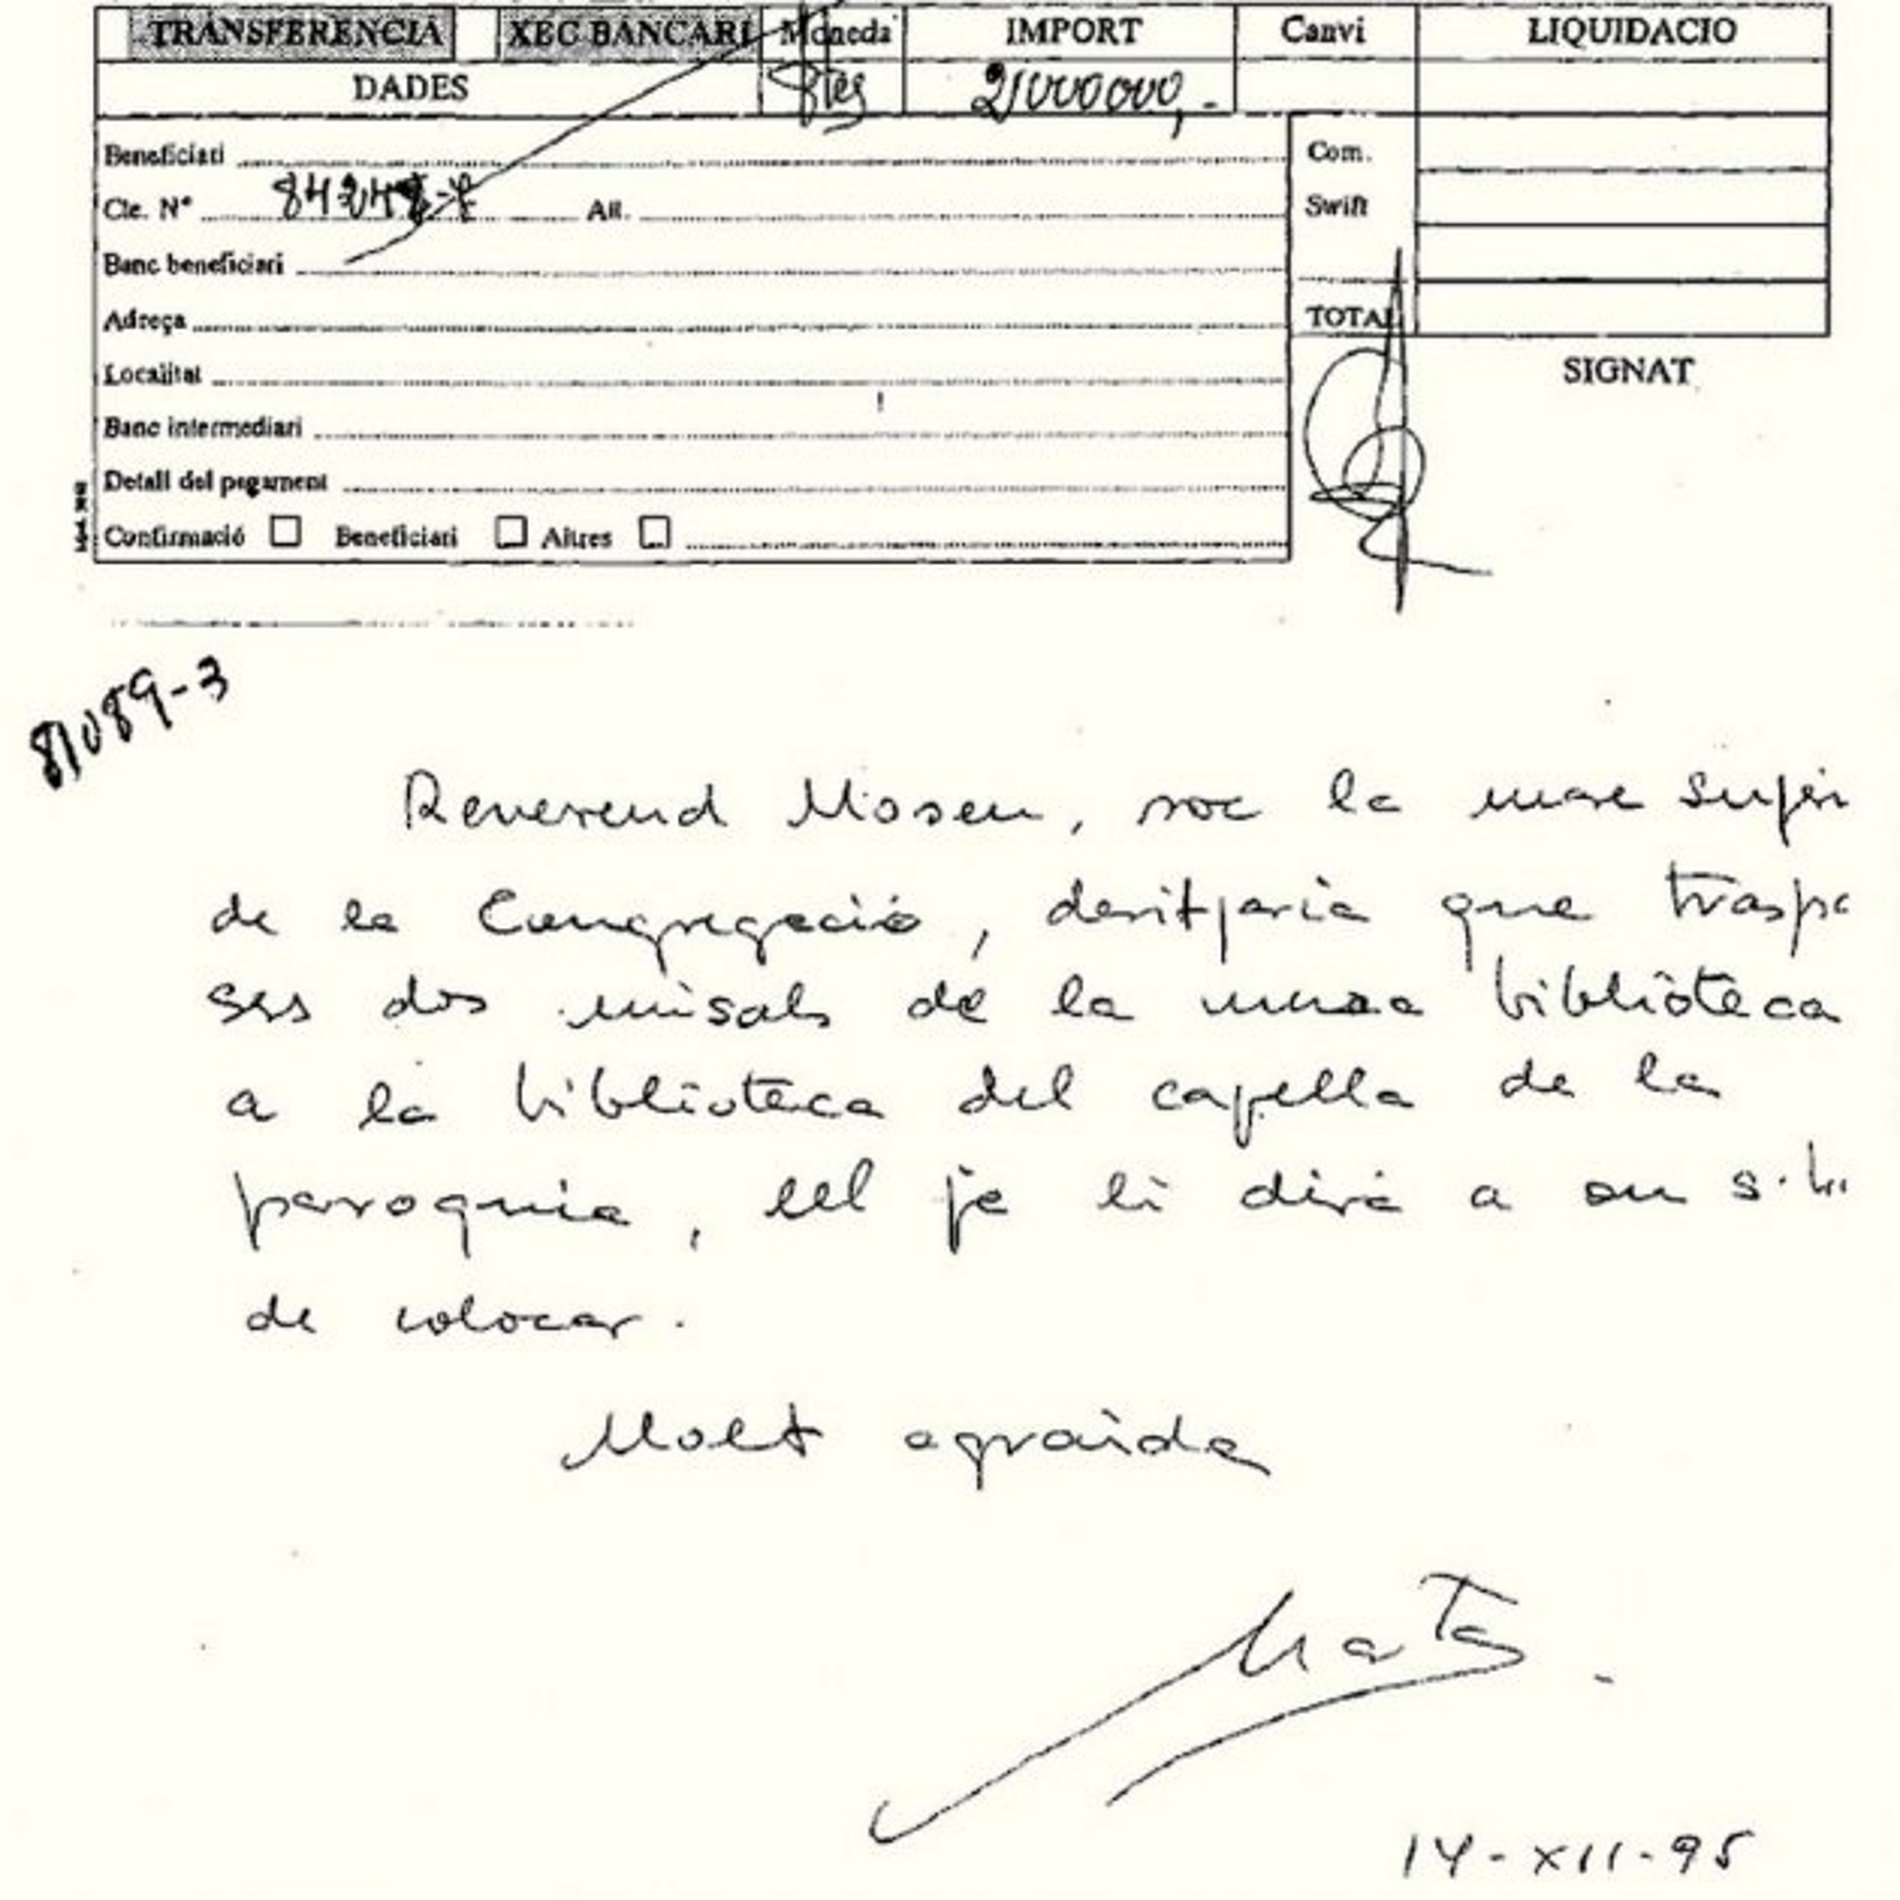 TRANSFERENCIA XEC BANCARI Moneda IMPORT Canvi LIQUIDACIO
DADES Ptes 2/000000,-
Beneficiari Com.
Cte. Nº 84248-7 All. Swift
Banc beneficiari
Adreça TOTAL
Localitat SIGNAT
Banc intermediari
Detall del pagament
Confirmació Beneficiari Altres
81089-3
Reverend Mosen, soc la mare super
de la Congregació, desitjaria que traspa
ses dos misals de la meva biblioteca
a la biblioteca del capella de la
paroquia, ell ja li dirá a on s.
de colocar.
Molt agraida
Marta.
14-XII-95